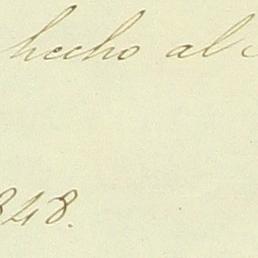 hecho al
848.